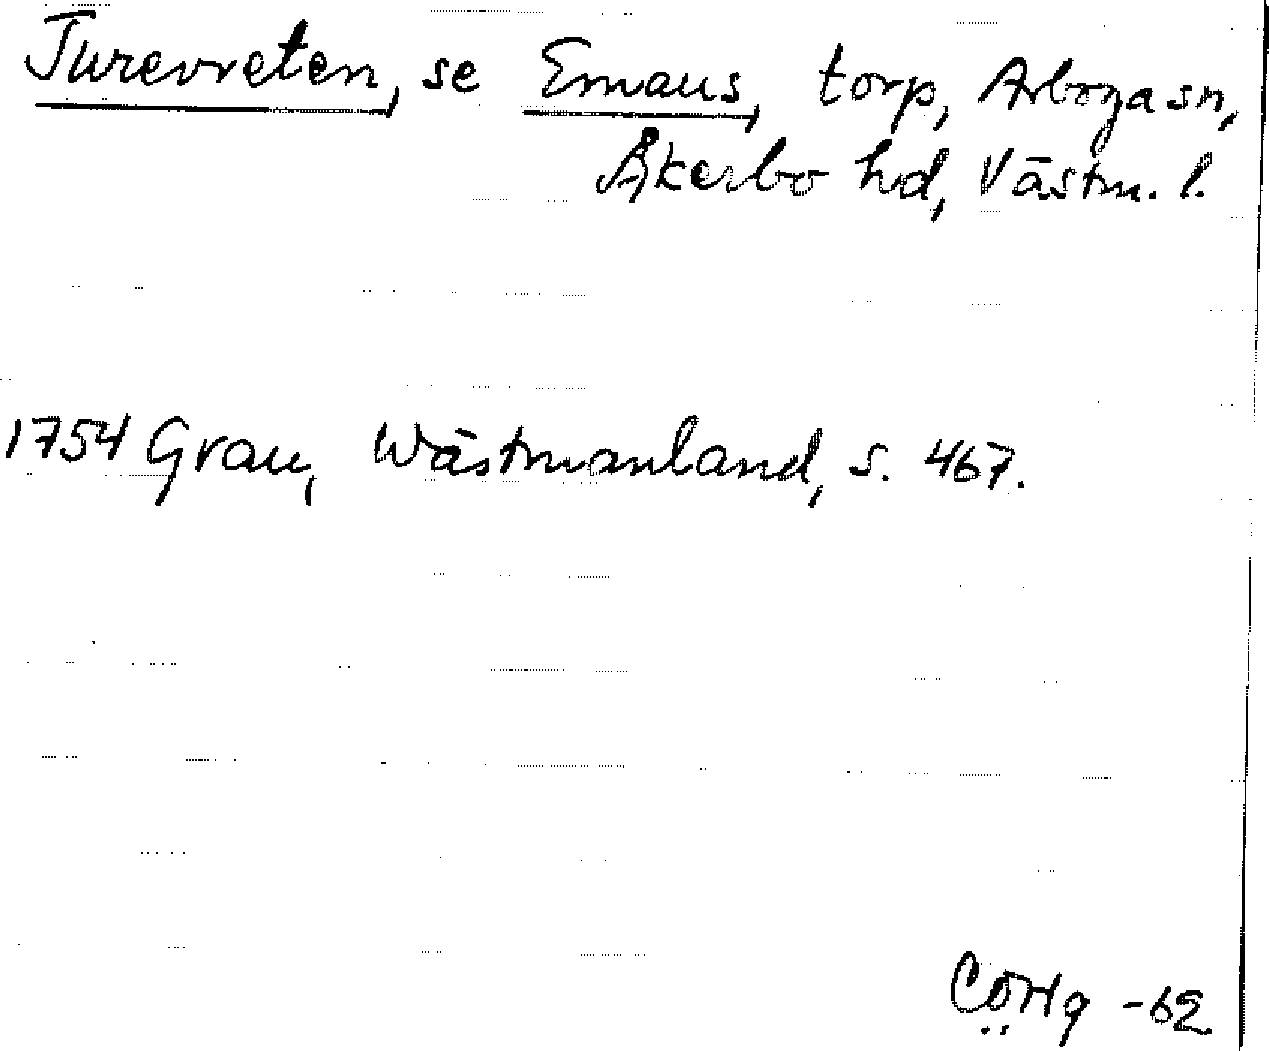 Turevreten, se Emaus, torp, Arboga sn,
Åkerbo hd, Västm. l.
1754 Grau, Wästmanland, s. 467.
-62